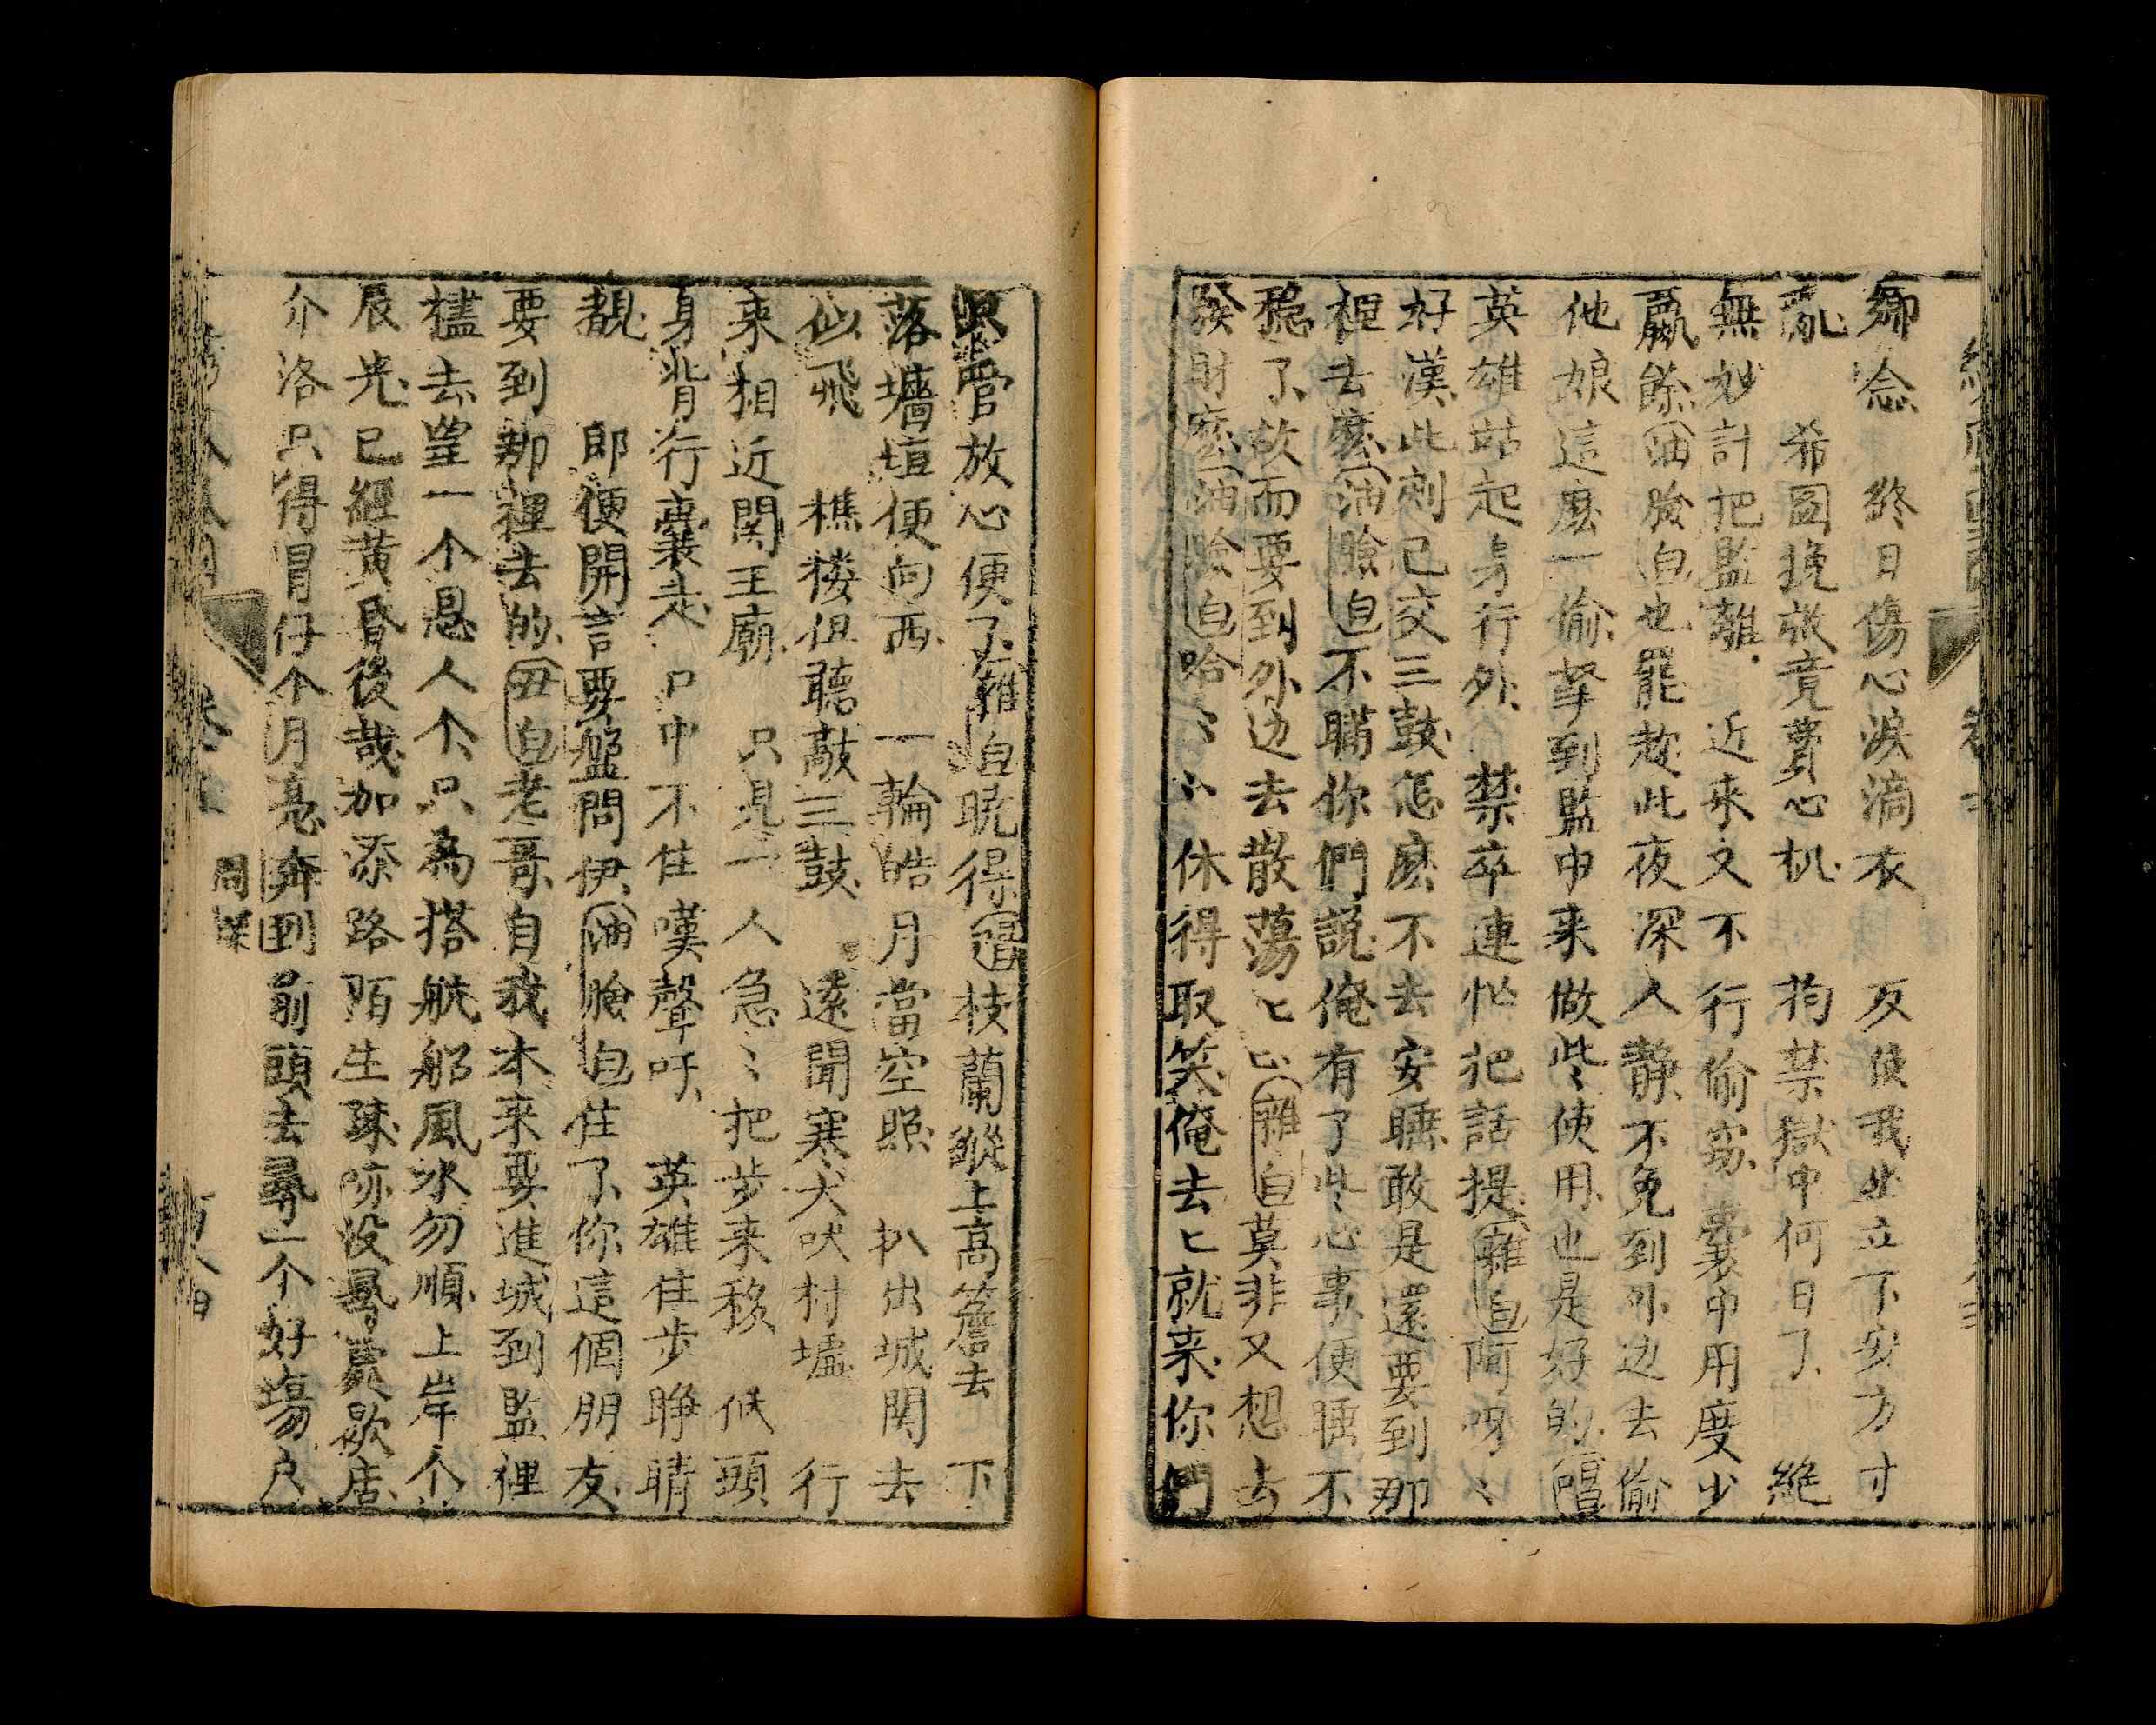 鄉念　終日傷心淚滴衣　反使我坐立不安方寸
亂　希圖挽救竟費心机　拘禁獄中何日了　絶
無妙計把監離　近來又不行偷窃囊中用度少
贏餘油臉白也罷趁此夜深人静不免到外边去偷
他娘這麽一偷拏到監中来做些使用也是好的唱
英雄站起身行外　禁卒連忙把話提雜白阿呀〻
好漢此刻已交三鼓怎麽不去安睡敢是還要到那
裡去麽油臉白不瞞你們説俺有了些心事便睡不
穏了故而要到外边去散蕩〻〻雜白莫非又想去
發財麽油臉白哈〻〻休得取笑俺去〻就来你們
只管放心便了雜白曉得唱枝蘭縱上高簷去　下
落墻垣便向西　一輪皓月當空照　扒出城関去
似飛　樵楼但聽敲三鼓　遠聞寒犬吠村墟　行
来相近関王廟　只見一人急〻把步来移　低頭
身背行囊走　口中不住嘆聲吁　英雄住步睁睛
覩　即便開言要盤問伊油臉白住了你這個朋友
要到那裡去的丑白老哥自我本来要進城到監裡
去望一个恩人个只為搭航船風水勿順上岸个
辰光已經黄昏後哉加添路陌生踈亦没尋處歇店
介洛只得冒仔个月亮奔到前頭去尋一个好場户